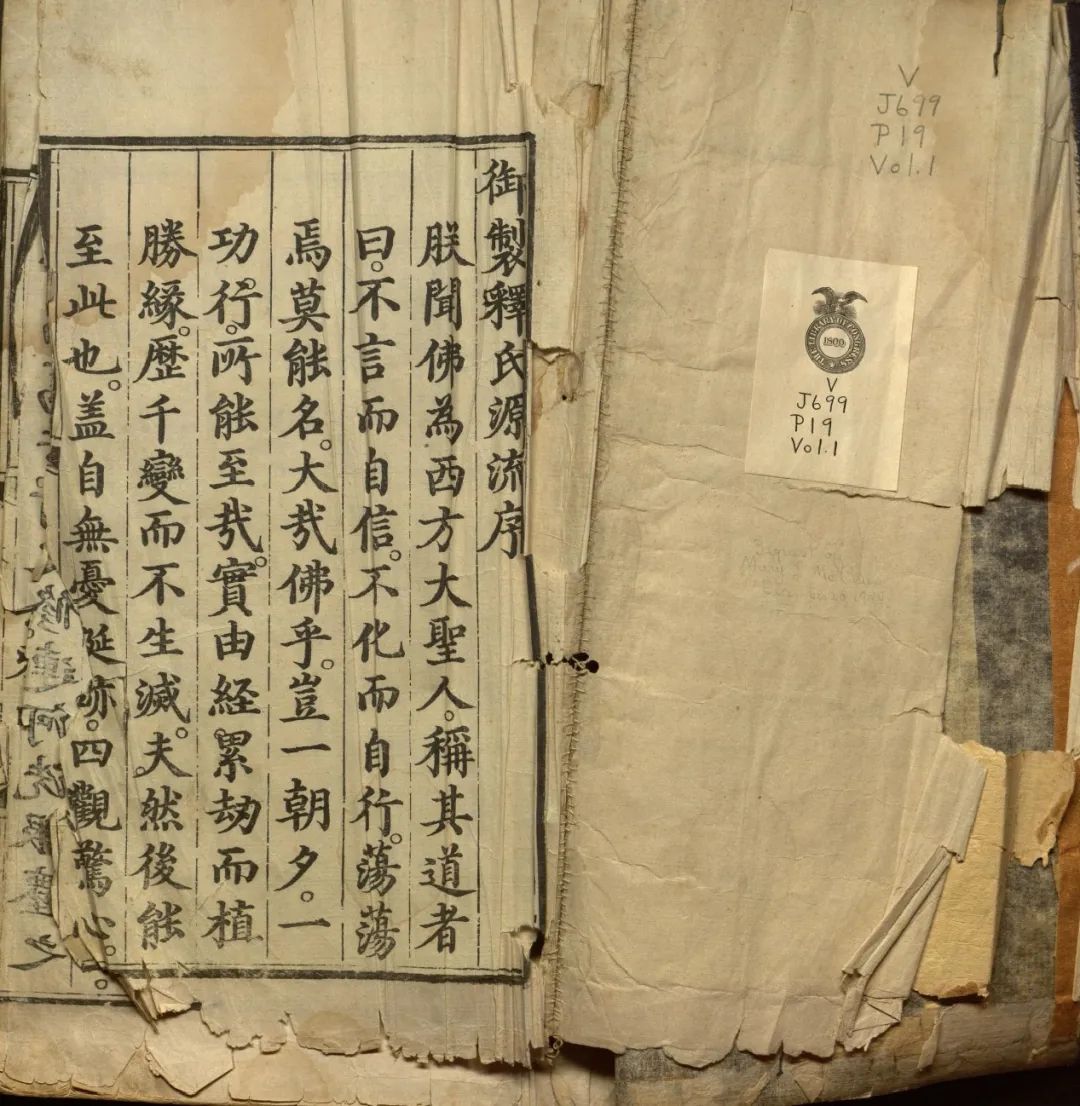 V
J699
P19
Vol.1
THE LIBRARY OF CONGRESS
1800
V
J699
P19
Vol.1
御製釋氏源流序
朕聞佛為西方大聖人。稱其道者
曰。不言而自信。不化而自行。蕩蕩
焉莫能名。大哉佛乎。豈一朝夕。一
功。行。所能至哉。實由経累劫而植
勝緣。歷千變而不生滅。夫。然後能
至此也。盖自無憂。四觀驚心。